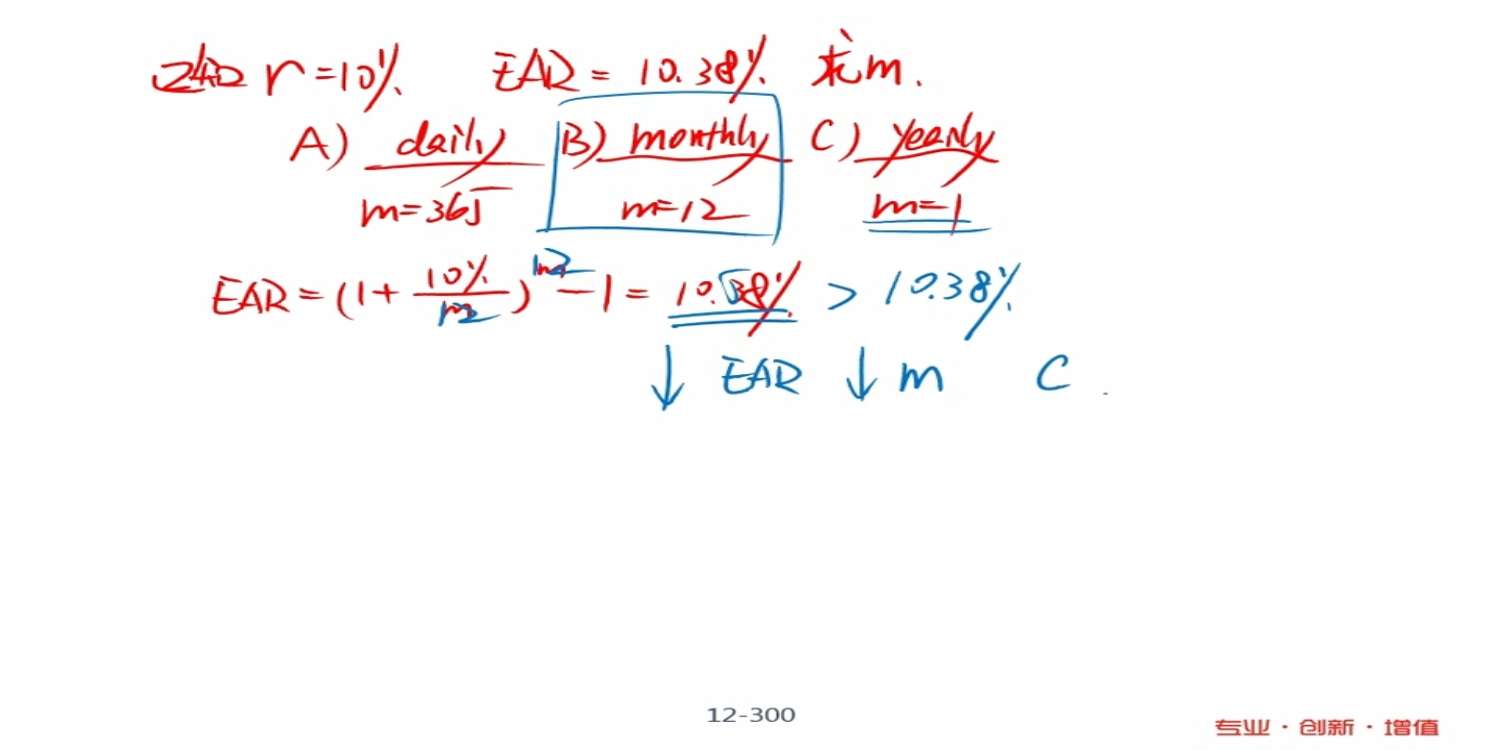 已知 r=10% EAR = 10.38% 求m.
A) daily B) monthly C) yearly
m=365 m=12 m=1
EAR = (1 + 10%/12)^12 - 1 = 10.38% > 10.38%
↓ EAR ↓ m C
12-300
专业·创新·增值